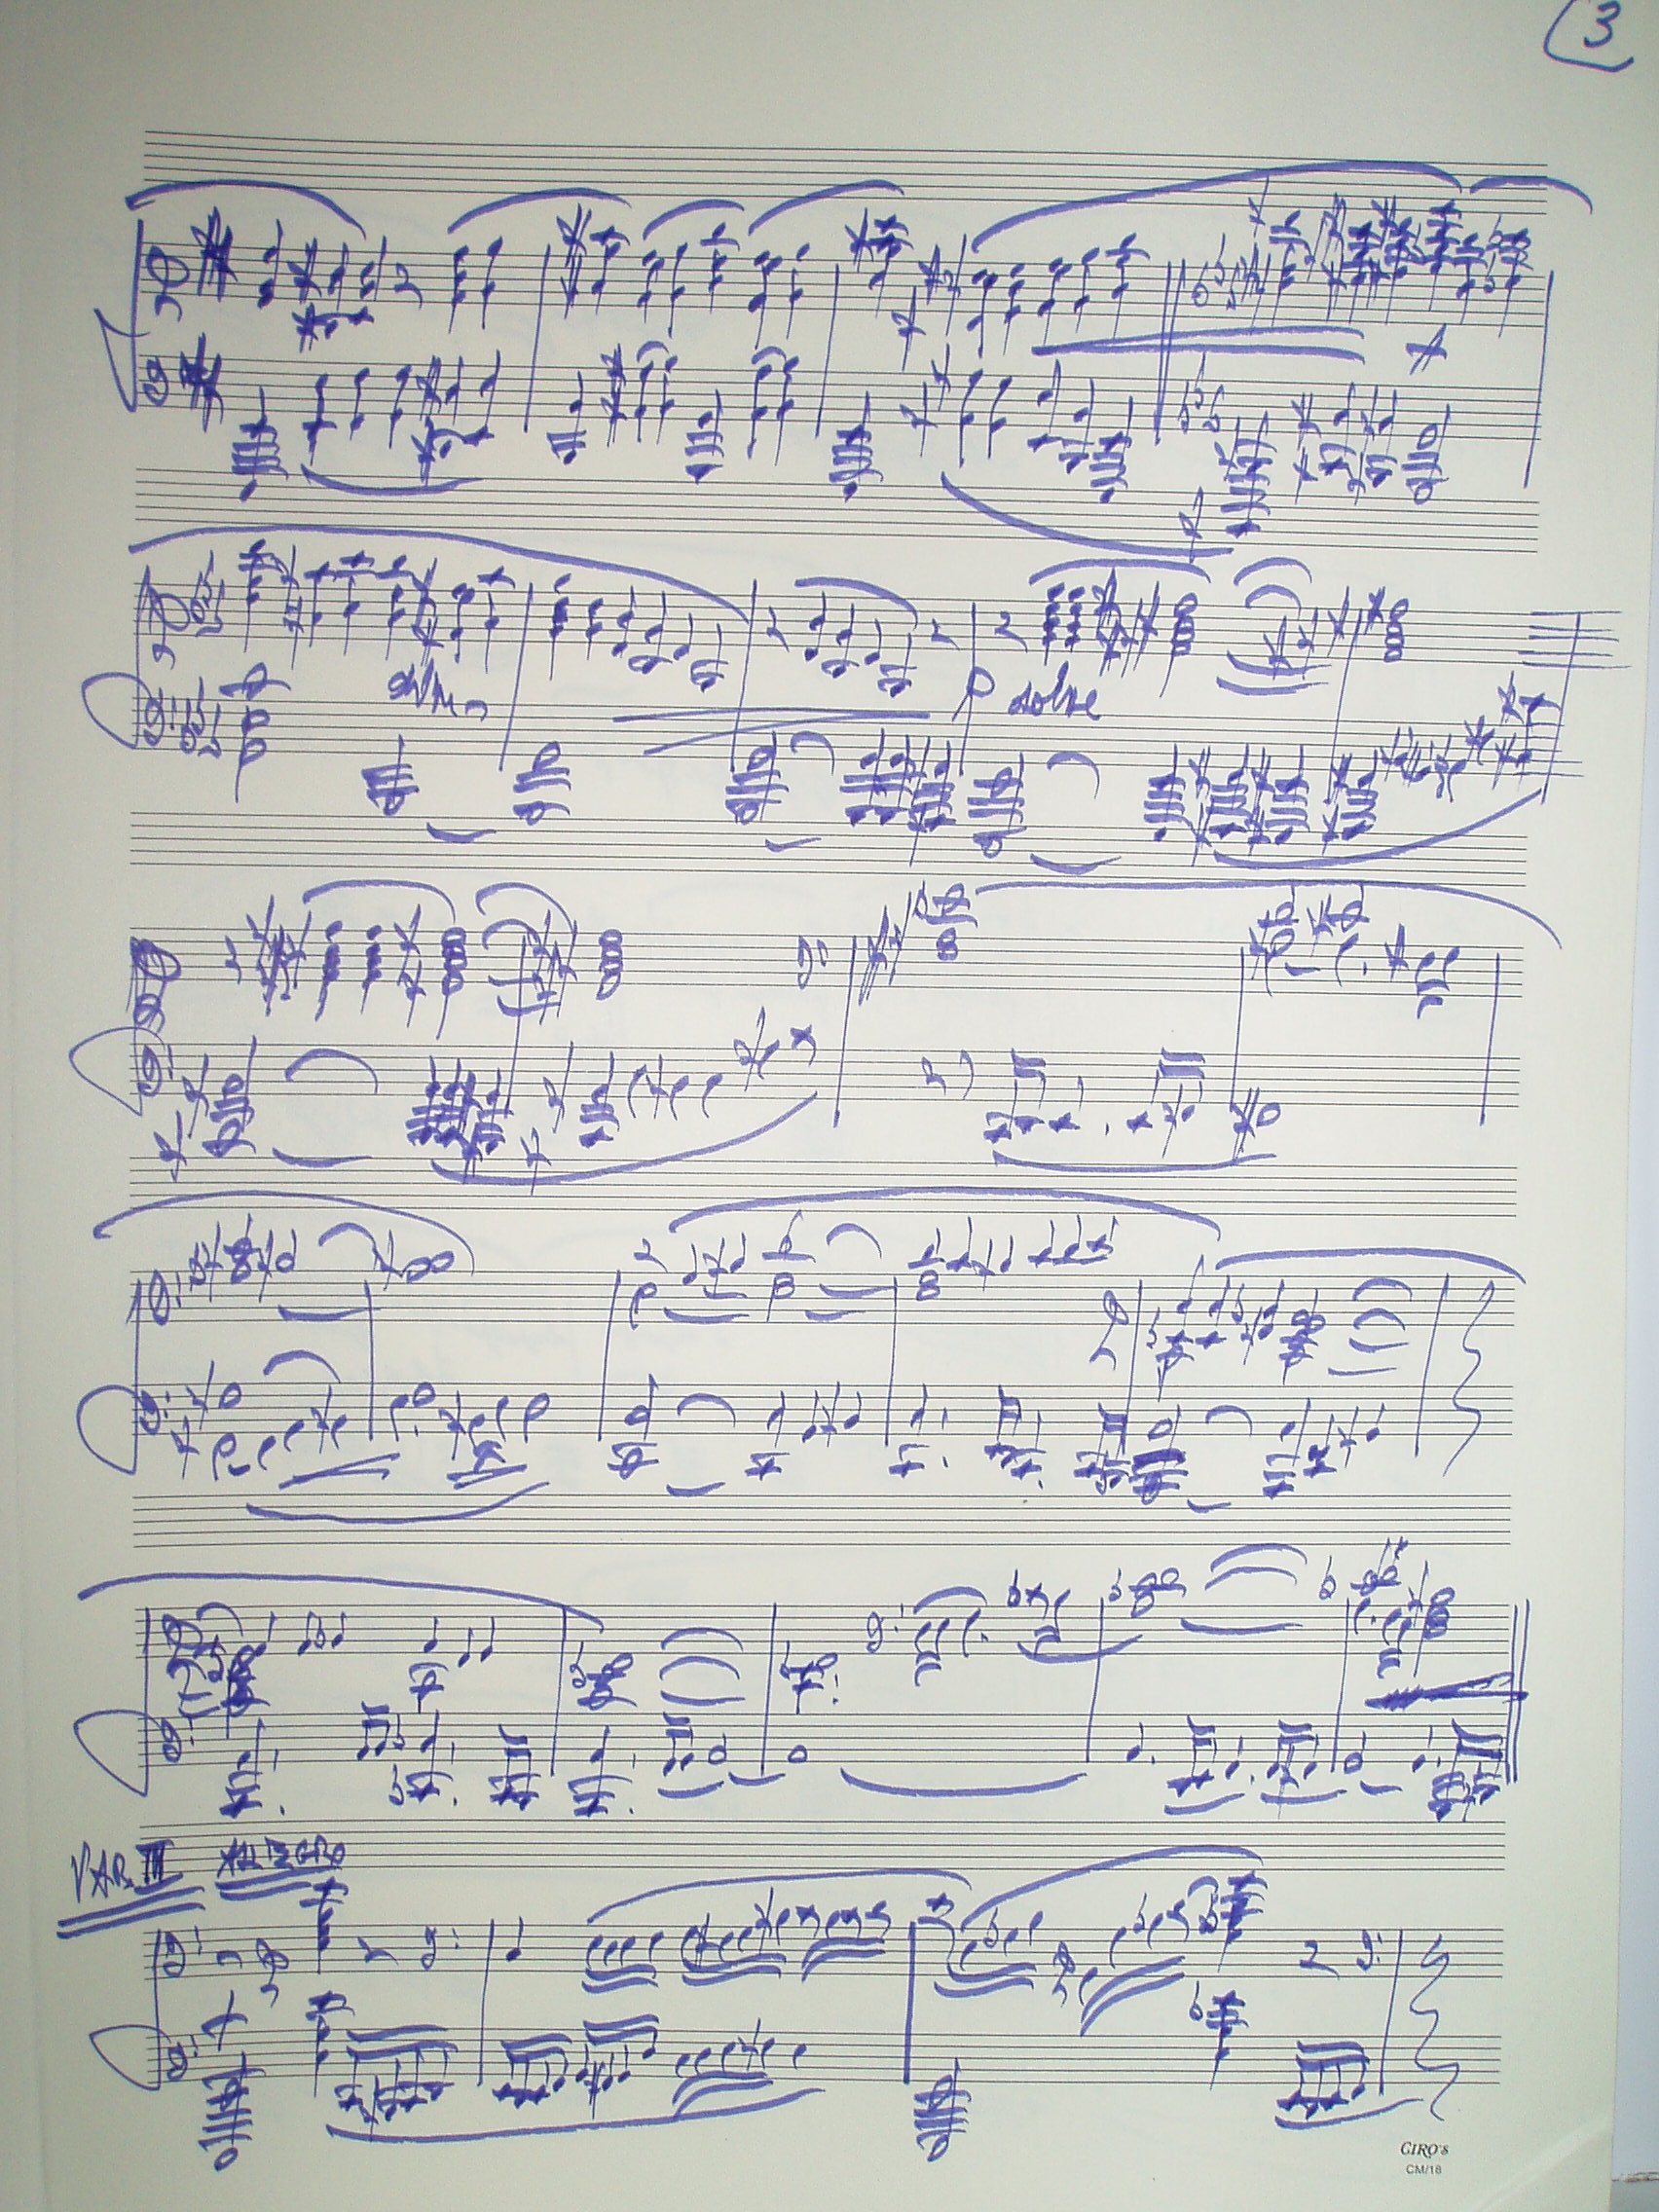 3
dim
p dolce
VAR. III ALLEGRO
CIRO's
CM/18